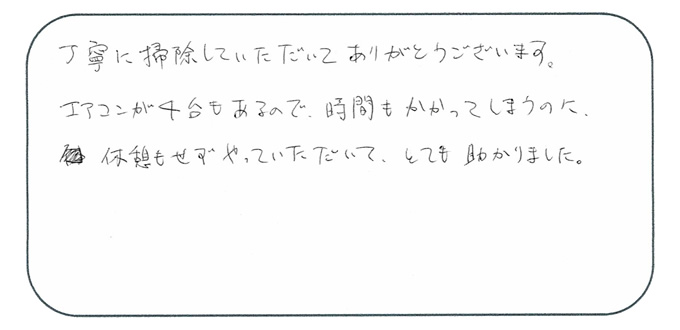 丁寧に掃除していただいてありがとうございます。
エアコンが4台もあるので、時間もかかってしまうのに、
休憩もせずやっていただいて、とても助かりました。